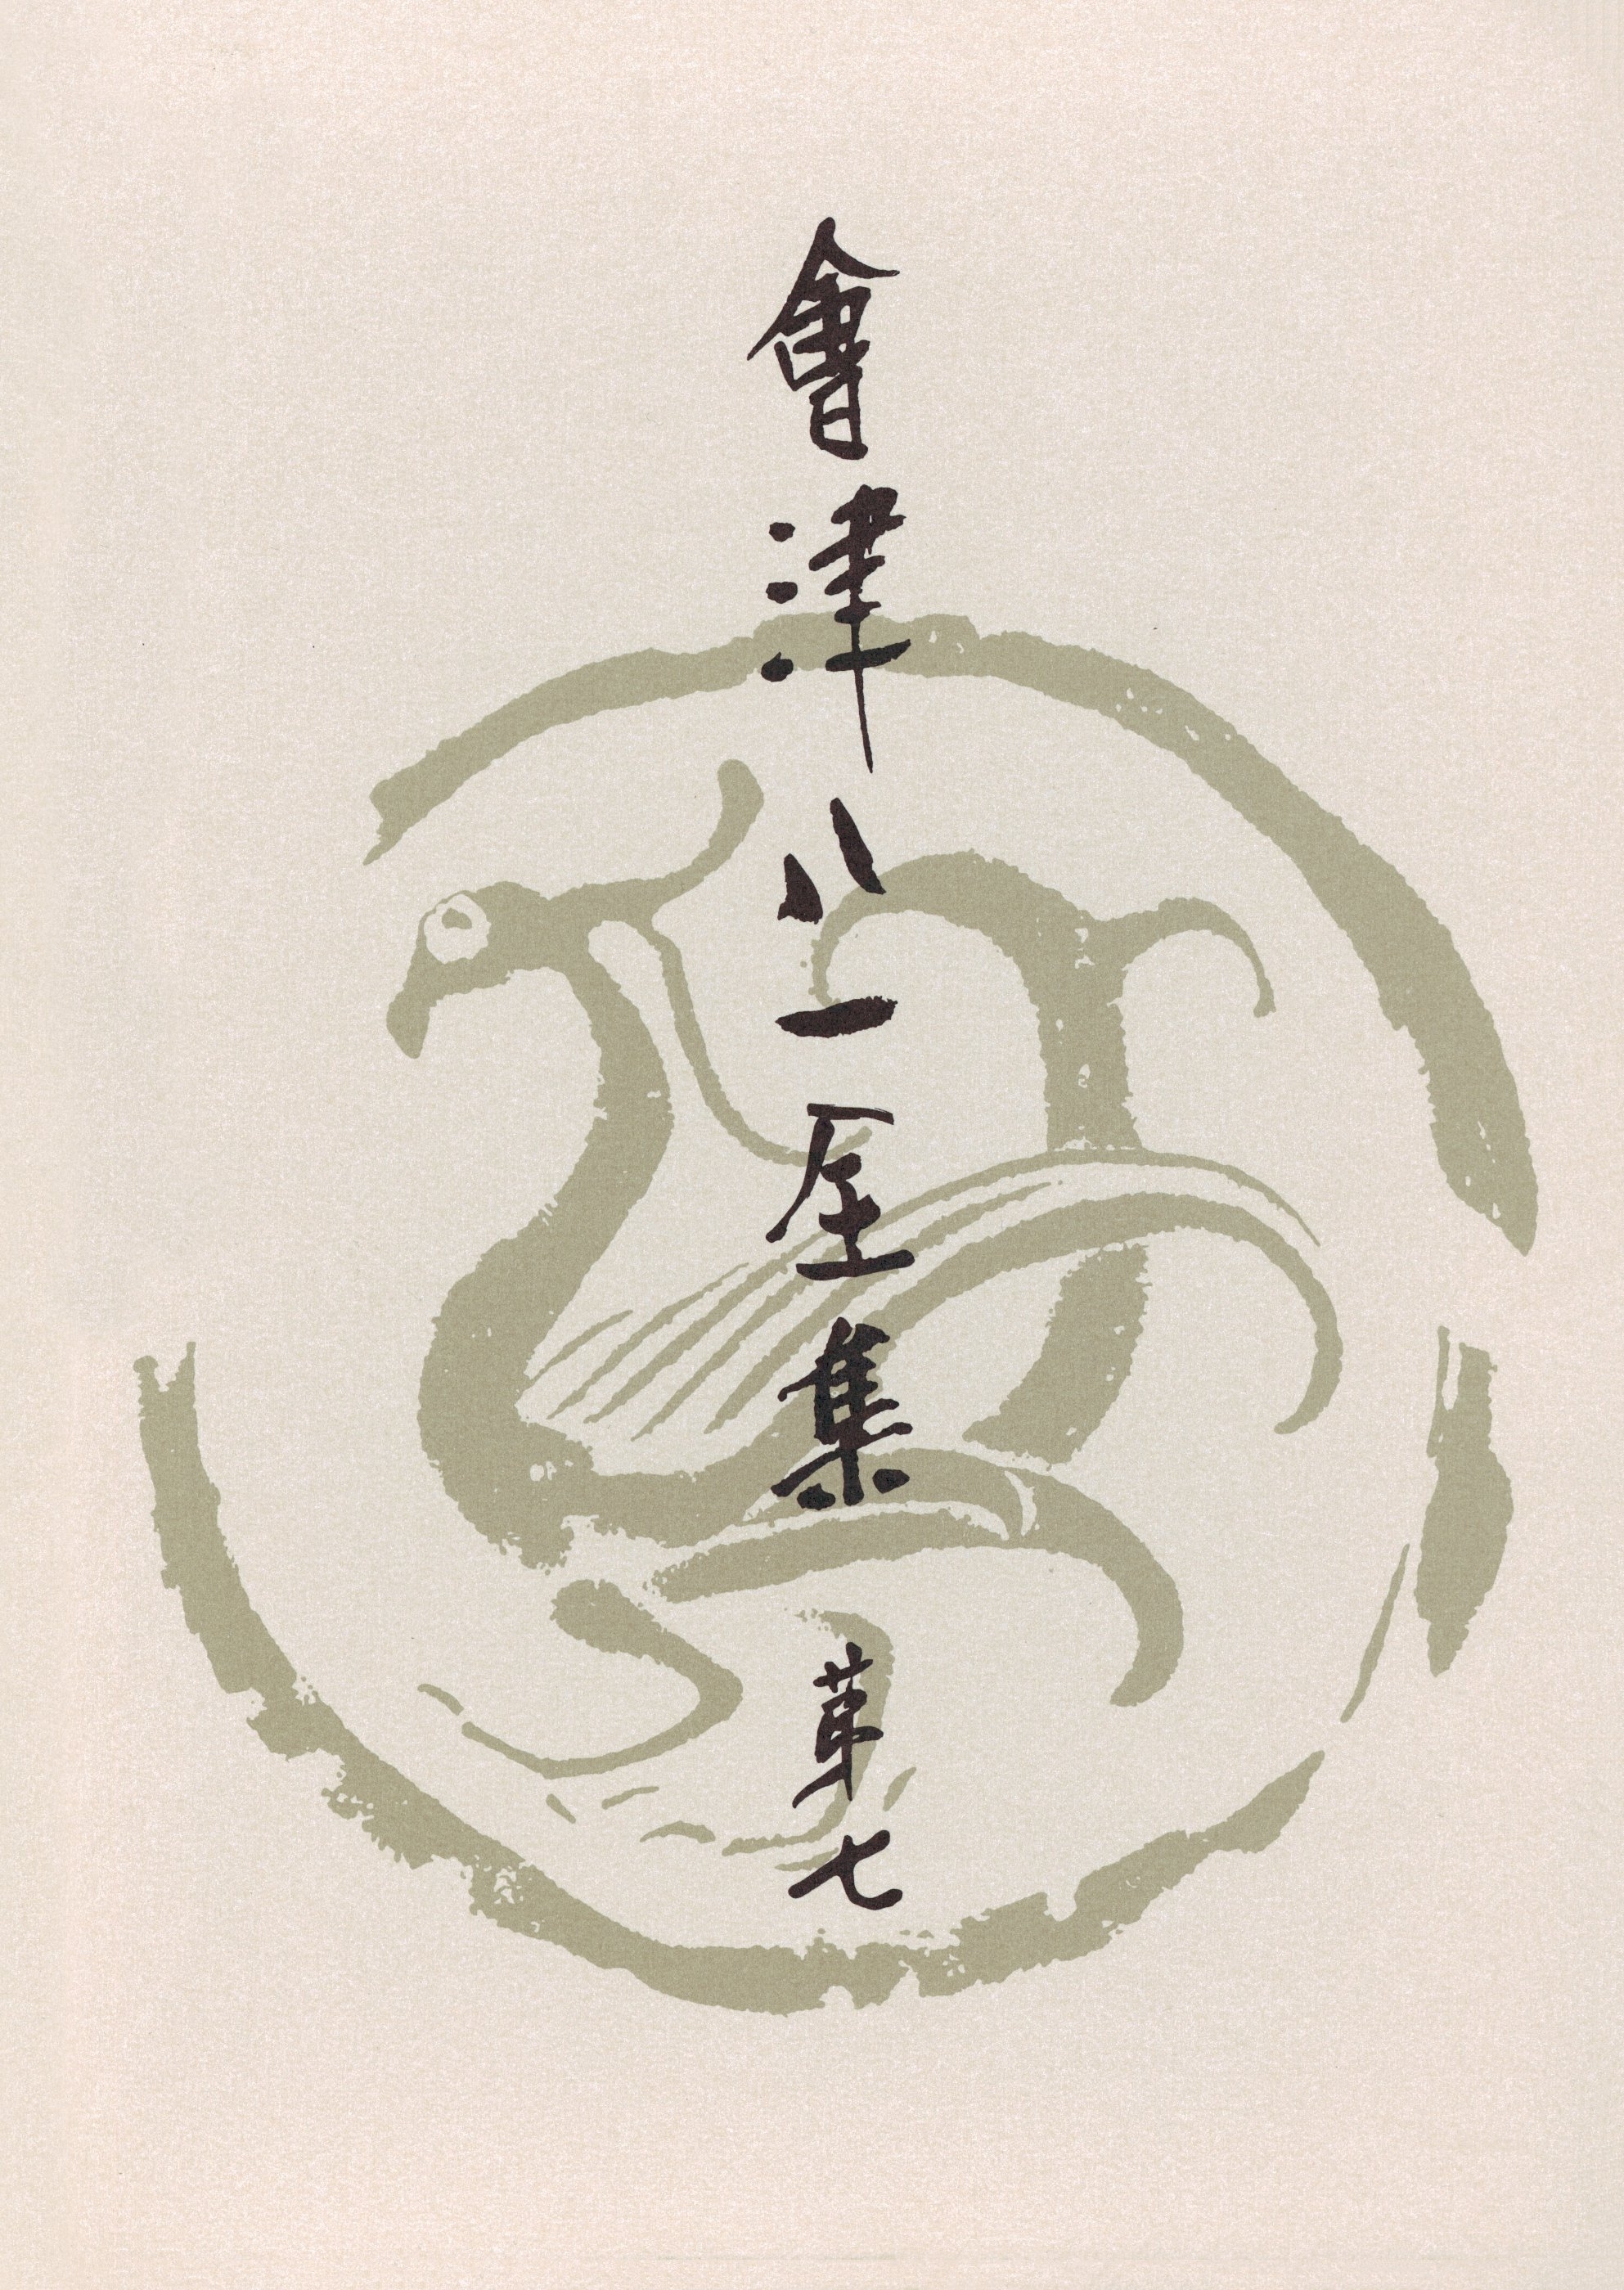 會津八一全集 第七